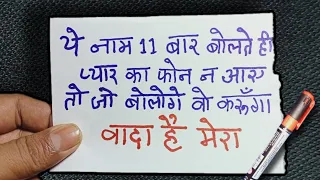 ये नाम 11 बार बोलते ही
प्यार का फोन न आए
तो जो बोलोगे वो करूँगा
वादा है मेरा